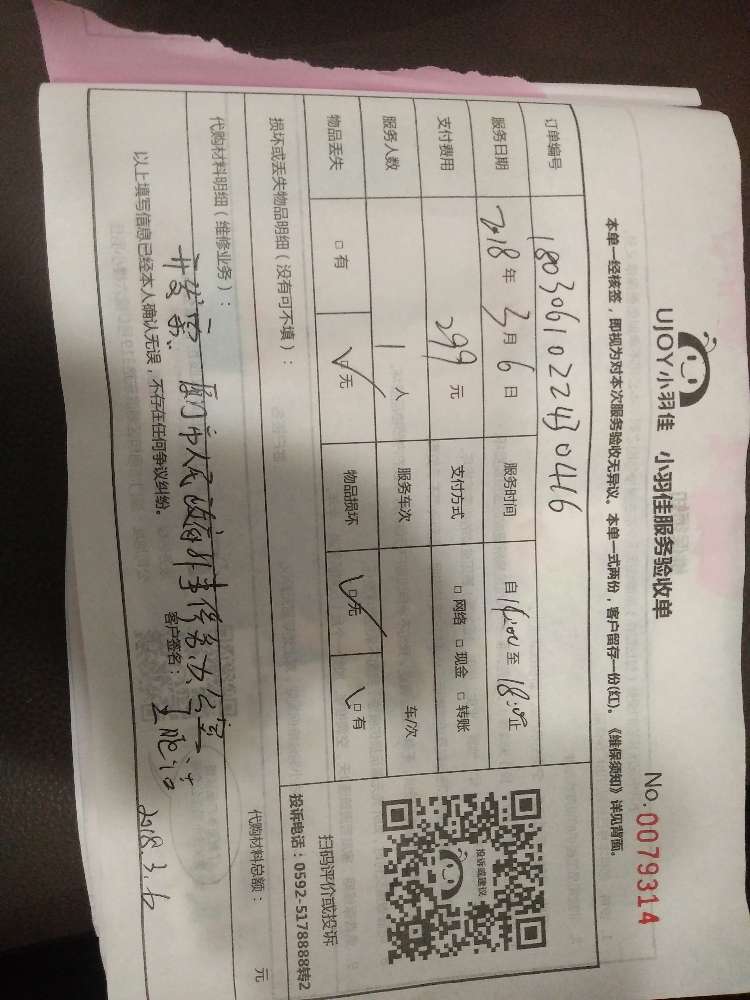 UJOY小羽佳 小羽佳服务验收单
No. 0079314
本单一经核签，即视为对本次服务验收无异议。本单一式两份，客户留存一份(红)。《维保须知》详见背面。
订单编号 1803061022430416
服务日期 2018 年 3 月 6 日 服务时间 自 14:00 至 18:00 止
支付费用 299 元 支付方式 □ 网络 □ 现金 □ 转账
服务人数 1 人 服务车次 车/次
物品丢失 □ 有 □ 无 物品损坏 □ 无 □ 有
投诉或建议
扫码评价或投诉
投诉电话：0592-5178888转2
损坏或丢失物品明细（没有可不填）：
代购材料明细（维修业务）： 代购材料总额： 元
开发票： 厦门市人民政府外事侨务办公室
以上填写信息已经本人确认无误，不存在任何争议纠纷。 客户签名： 2018.3.6